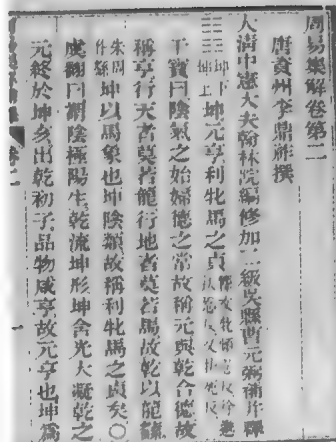 周易集解卷第二
唐資州李鼎祚撰
大清中憲大夫翰林院編修加二級吳縣曹元弼補幷釋
坤下
坤上
坤元亨利牝馬之貞
干寶曰陰氣之始婦德之常故稱元與乾合德故
稱亨行天者莫若龍行地者莫若馬故乾以龍繇
坤以馬象也坤陰類故稱利牝馬之貞矣○
虞翻曰謂陰極陽生乾流坤形坤含光大凝乾之
元終於坤亥出乾初子品物咸亨故元亨也坤爲
卷二
一